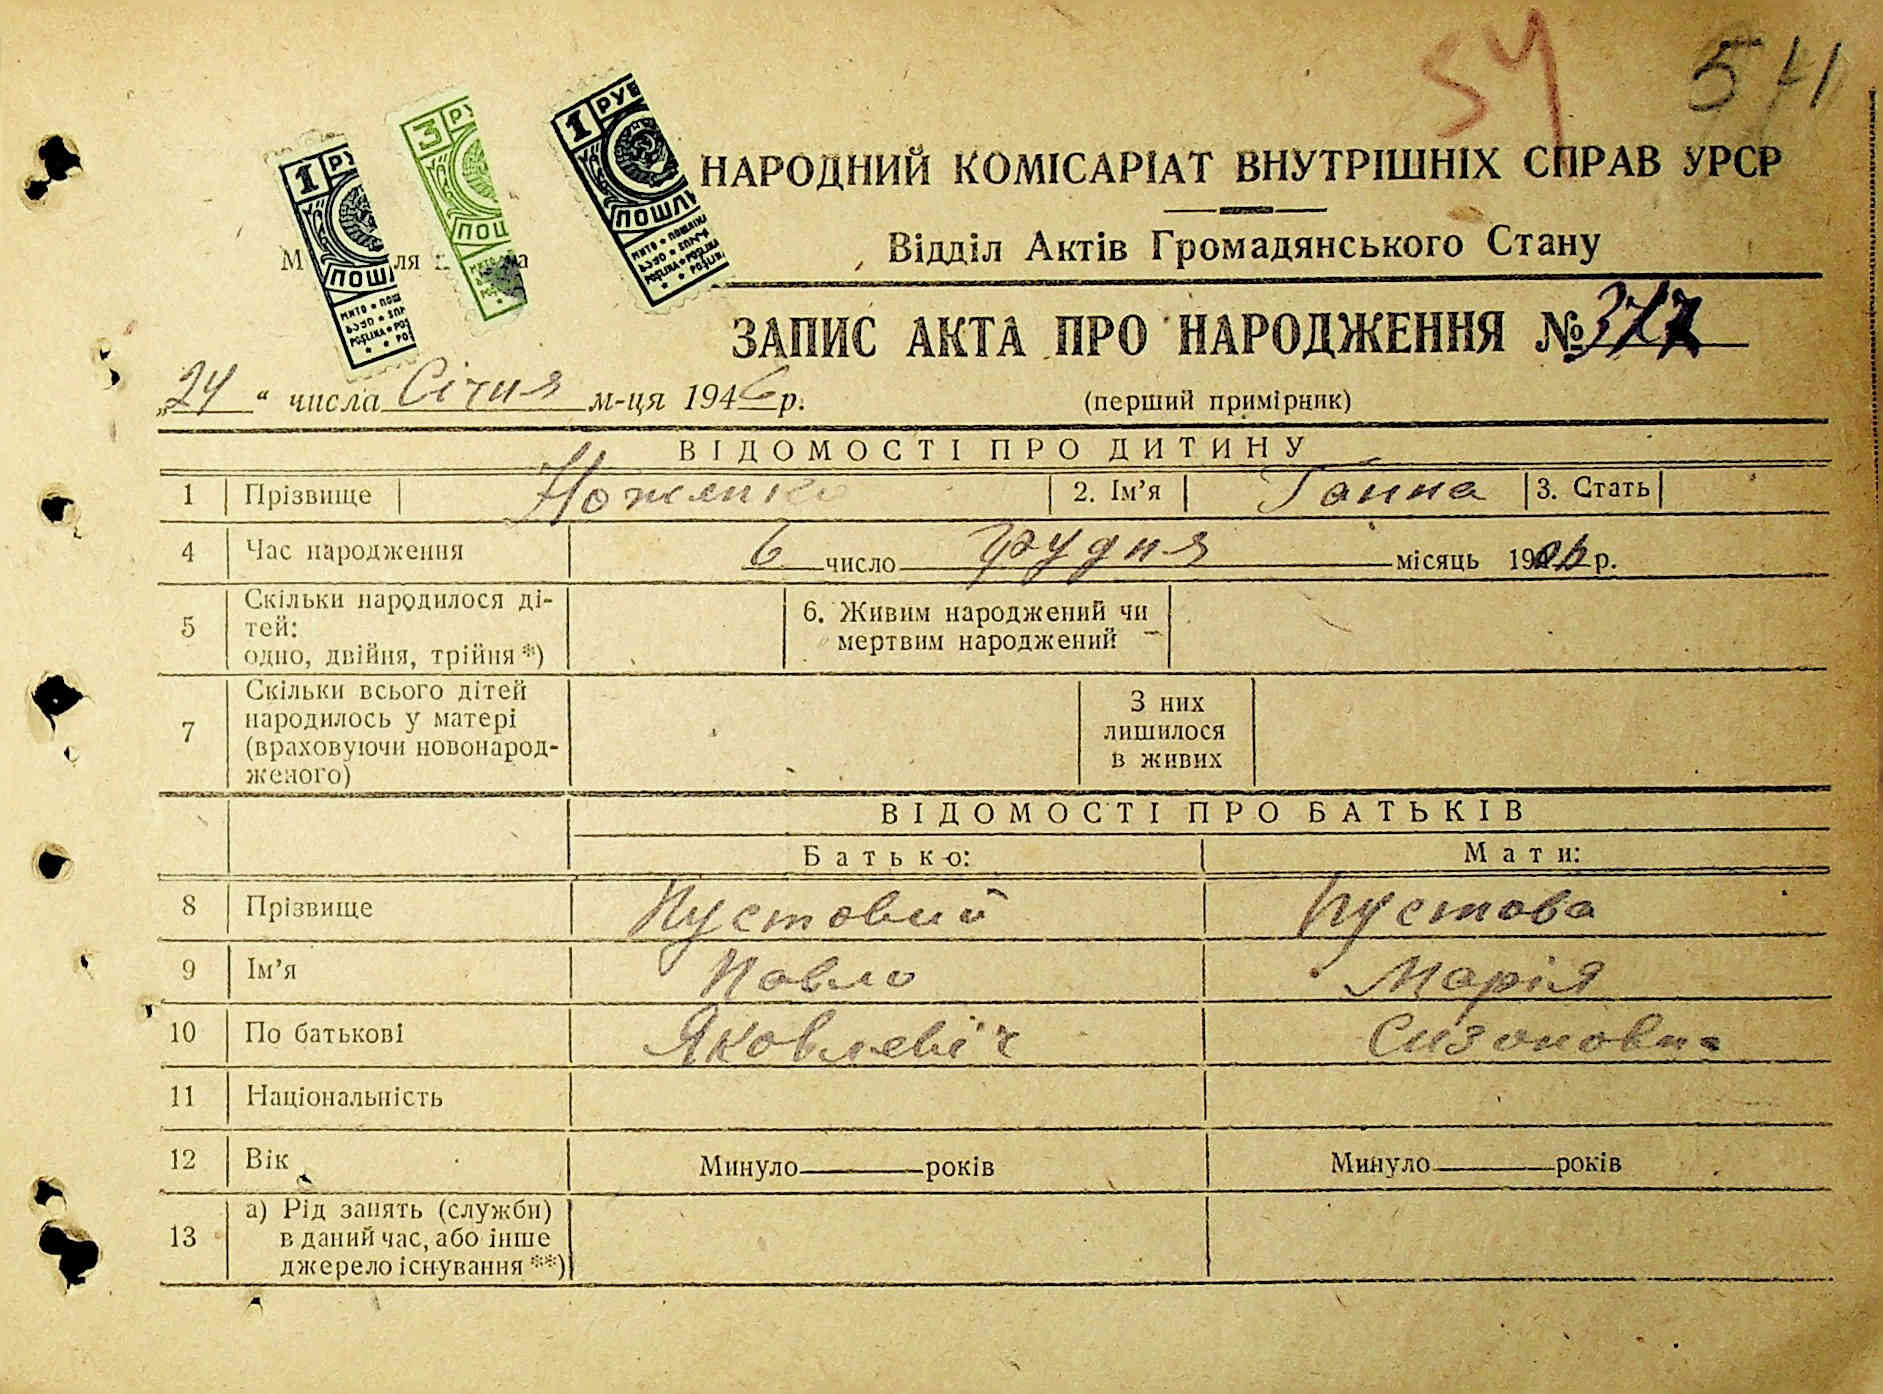 54
541
1 РУБ
3 РУ
1 РУБ
ПОШЛ
НАРОДНИЙ КОМІСАРІАТ ВНУТРІШНІХ СПРАВ УРСР
Відділ Актів Громадянського Стану
ЗАПИС АКТА ПРО НАРОДЖЕННЯ № 377
„24“ числа Січня м-ця 1946 р.
(перший примірник)
ВІДОМОСТІ ПРО ДИТИНУ
1 Прізвище Ноженко 2. Ім’я Ганна 3. Стать
4 Час народження 6 число грудня місяць 1906 р.
5 Скільки народилося ді-
тей:
одно, двійня, трійня *)
6. Живим народжений чи
мертвим народжений
7 Скільки всього дітей
народилось у матері
(враховуючи новонарод-
женого)
З них
лишилося
в живих
ВІДОМОСТІ ПРО БАТЬКІВ
Батько: Мати:
8 Прізвище Пустовий Пустова
9 Ім’я Павло Марія
10 По батькові Яковлевіч Сизоновн
11 Національність
12 Вік Минуло років Минуло років
13 а) Рід занять (служби)
в даний час, або інше
джерело існування **)